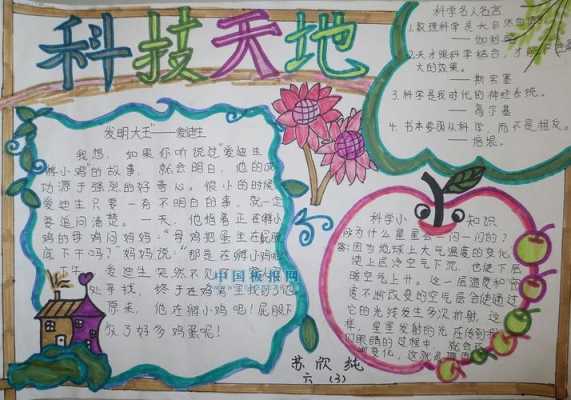 科技天地
发明大王"——爱迪生
我想,如果你听说过"爱迪生
孵小鸡"的故事,就会明白,他的成
功源于强烈的好奇心。很小的时候
爱迪生只要一有不明白的事,就一定
要追问清楚。一天,他指着正在孵小
鸡的母鸡问妈妈:"母鸡把蛋坐在屁股
底下干吗?"妈妈说:"那是在孵小鸡呢
爱迪生突然不见了
处寻找,终于在鸡窝里找到了他
原来,他在孵小鸡呢!屁股下
放了好多鸡蛋呢!
中国板报网
科学名人名言
1.数理科学是大自然
——伽利略
2.天才跟科学结合,才
大的效果。
——斯宾塞
3.科学是我时代的神经系统。
——高尔基
4.书本要面从科学,而不是相反。
——培根。
科学小知识
为什么星星会一闪一闪的?
答:因为地球上大气温度的变化,
使上层冷空气下沉,也使下层
暖空气上升。这一层温度和密
度不断改变的空气层会使通过
它的光线发生多次折射,这
样,星星发射的光在传到
们眼睛的过程中,就会
变化,这就
苏欣纯
六(3)